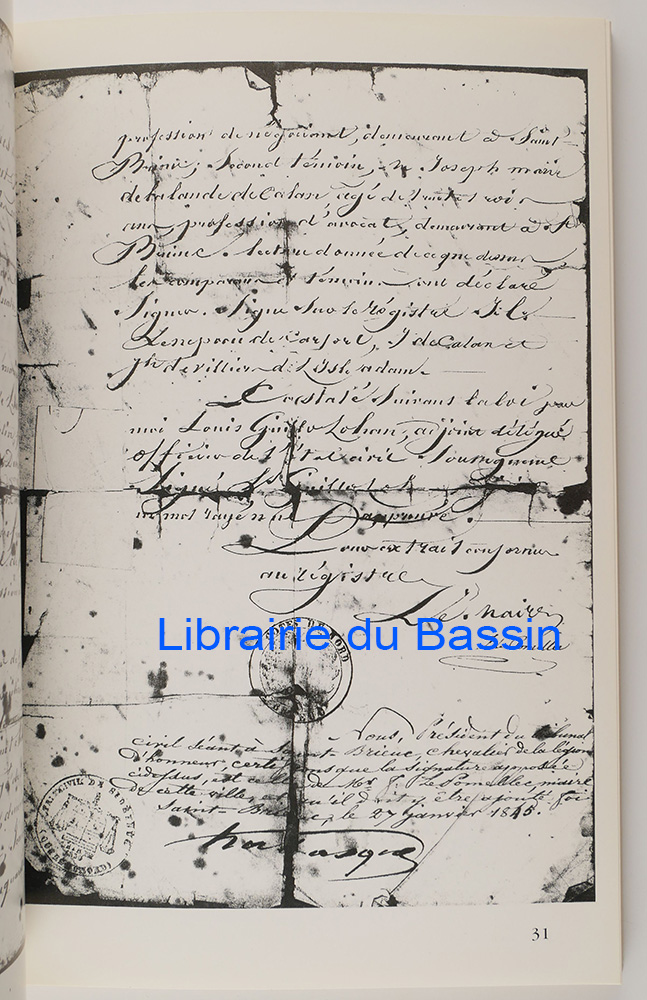 profession de négociant, demeurant à Saint-
Brieuc; Second témoin, Mr Joseph marie
de la lande de Calan, agé de trente trois
ans, profession d'avocat, demeurant à St
Brieuc. lecture donnée de ce que dessus
les comparans et témoins ont déclaré
Signer. Signé sur le régistre
Lenepvou de Carfort, J de Calan et
Jh de villiers de L'isle adam.
Constaté Suivant la loi par
moi Louis Guillo Lohan, adjoint délégué
officier de l'Etat civil Soussigné.
Signé Ls Guillo Lohan
un mot rayé nul approuvé.
Pour extrait conforme
au régistre
Le Maire
Librairie du Bassin
COTES DU NORD
Nous, Président du tribunal
civil séant à Saint-Brieuc, chevalier de la légion
d'honneur, certifions que la signature apposée
cidessus, est celle de Mr T. Le Pomellec, maire
de cette ville, et qu'il doit y être ajouté foi
Saint-Brieuc, le 27 Janvier 1845.
31